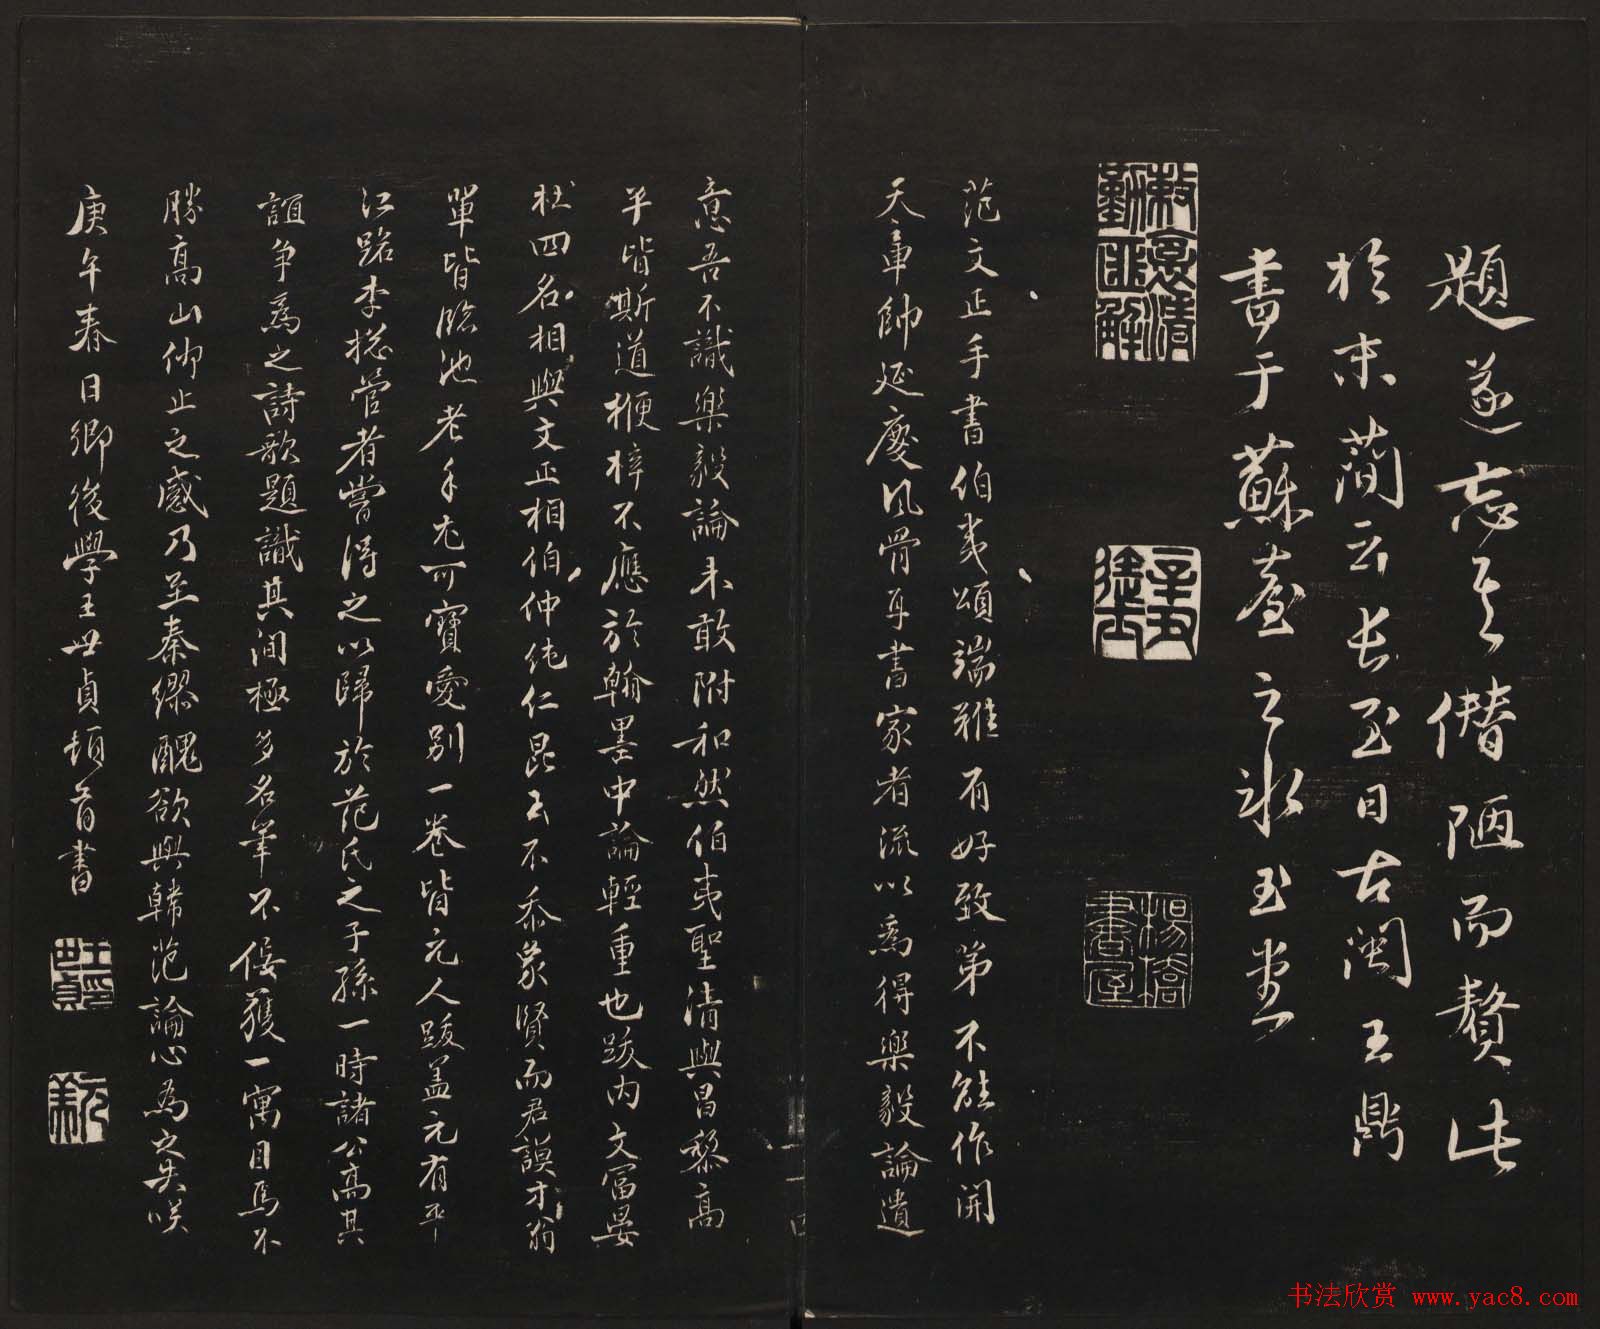 題遂忘其僭陋而贅此
於末蕳云長至日古閩王鼎
書于蘇臺之冰玉堂
楊橋書屋
范文正手書伯夷頌端雅有好致第不能作開
天軍帥延慶風骨耳書家者流以為得樂毅論遺
意吾不識樂毅論未敢附和然伯夷聖清與昌黎高
平皆斯道楩梓不應於翰墨中論輕重也跋內文富晏
杜四名相與文正相伯仲純仁昆玉不忝象賢而君謨才翁
單皆臨池老手尤可寶愛別一卷皆元人跋蓋元有平
江路李總管者嘗得之以歸於范氏之子孫一時諸公高其
誼爭為之詩歌題識其間極多名筆不佞獲一寓目焉不
勝高山仰止之感乃至秦繆醜欲與韓范論心為之失咲
庚午春日鄉後學王世貞頓首書
王印世貞
书法欣赏 www.yac8.com